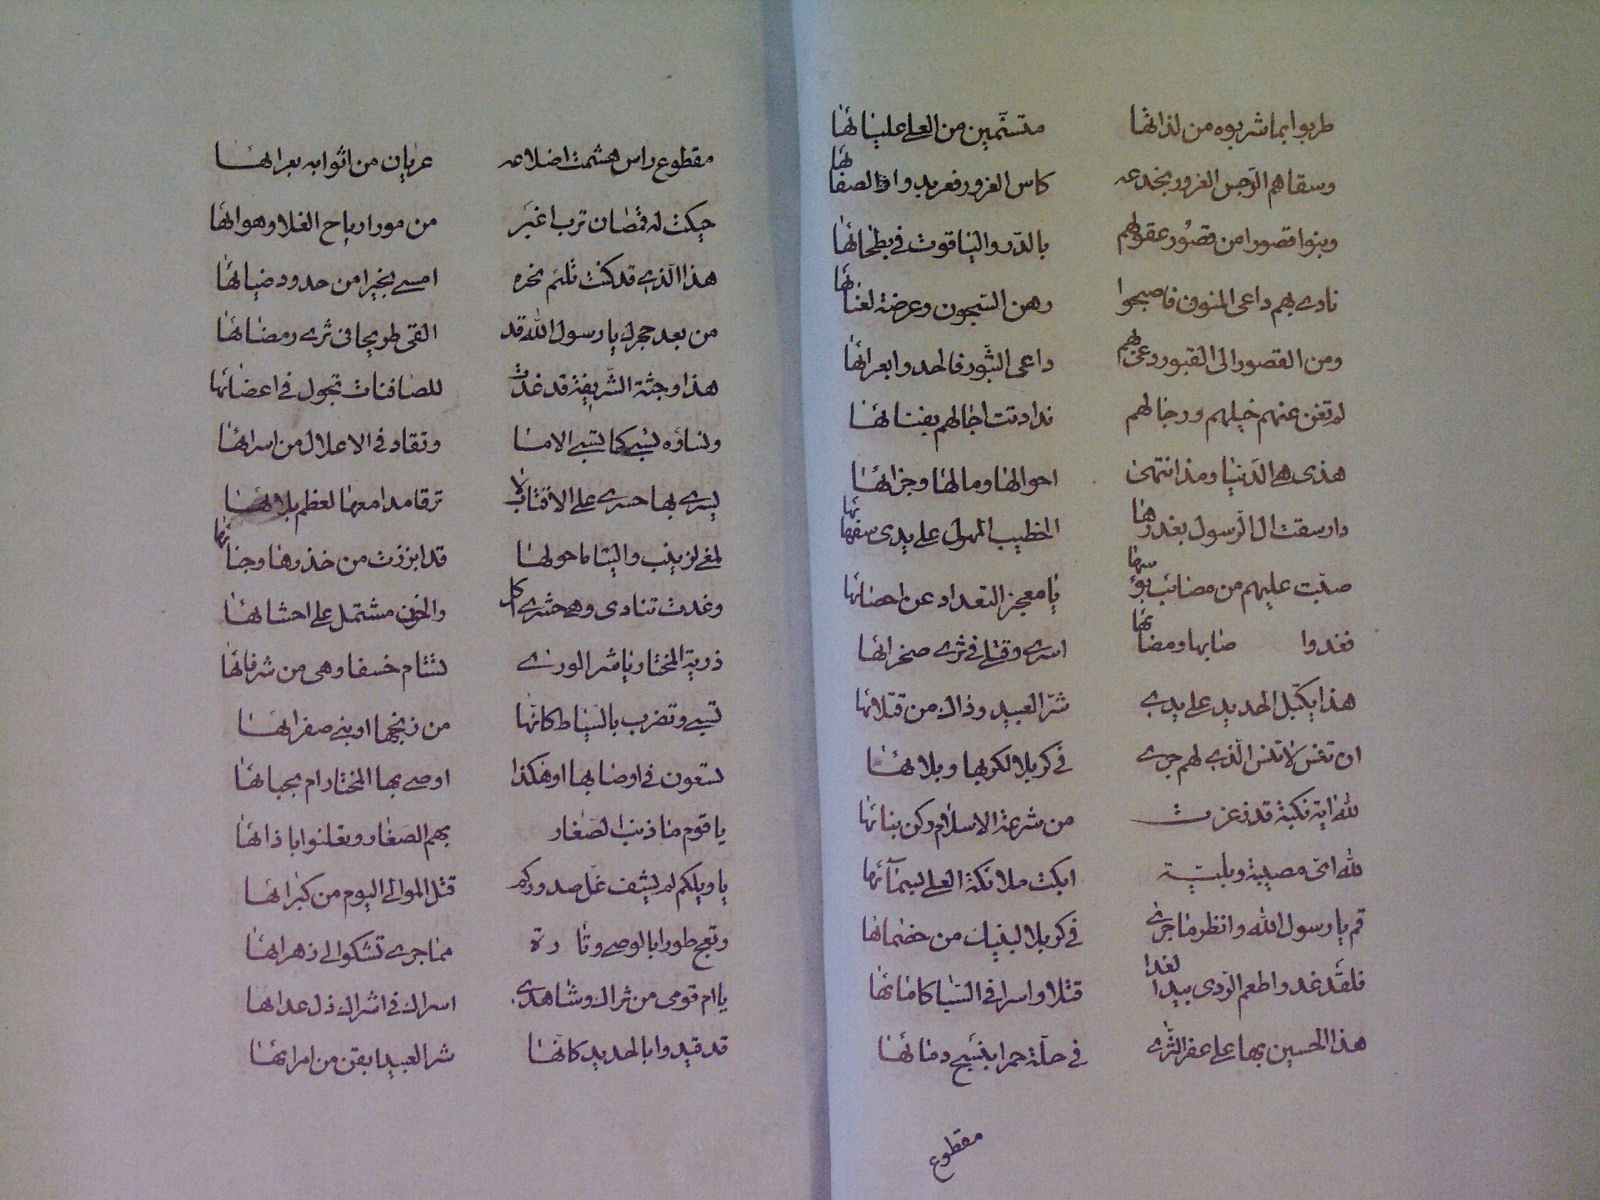 طربوا بما شربوه من لذاتها متسنّمين من العلى عليائها
وسقاهم الرجس الغرور بخدعه كاس الغرور فعربدوا لصفائها
وبنوا قصورا من قصور عقولهم بالدّر والياقوت في بطحائها
نادى بهم داعى المنون فاصبحوا رهن السجون وعرضة لغنائها
ومن القصور الى القبور دعى بهم داعى الثبور فالحدوا بعرائها
لم تغن عنهم خيلهم ورجالهم اذ دنت اجالهم بفنائها
هذى هى الدنيا ومذ احوالها ومالها وجزائها
دارسقت ال الرسول بغدرها الخطيب المهول على يدى سفهائها
صبّت عليهم من مصائب بؤسها يا معجز التعداد عن احصائها
فغدوا ومضائها اسرى وقتلى في ثرى صخرائها
هذا يكبّل الحديد على يدى شرّ العبيد وذاك من قتلائها
ان تنس لا تنس الّذى لهم جرى في كربلا لكربها وبلائها
لله اية نكبة قد زعزعت من شرعة الاسلام ركن بنائها
لله اىّ مصيبة وبليّة ابكت ملائكة العلى بسمآئها
قم يا رسول الله وانظر ما جرى في كربلا لبنيك من خصمائها
فلقد غدوا طعم الرّدى بيد العدا قتلا واسرا في السّبا كامائها
هذا الحسين بها على عفر الثرى في حلّة حمرا بنسج دمائها
مقطوع
مقطوع راس هشمت اضلاعه عريان من اثوابه بعرائها
حيكت له قمصان ترب اغبر من مور ارياح الفلا وهوائها
هذا الّذى قد كنت تلثم نحره امسى نحيرا من حدود ضبائها
من بعد حجرك يا رسول الله قد القى طريحا فى ثرى رمضائها
هذا وجثته الشّريفة قد غدت للصافنات تجول في اعضائها
ونساؤه تسبى كما تسبى الاما وتقاد فى الاغلال من اسرائها
يسرى بها حسرى على الاقتاب لا ترقا مدامعها لعظم بلائها
لهفى لزينب واليتاما حولها قد ابرزت من خدرها وخبائها
وغدت تنادى وهى حسرى والحزن مشتمل على احشائها
ذرية المختار يا شر الورى تشتام خسفا وهى من شرفائها
تسبى وتضرب بالسياط كانّها من زنجها او بنى صفرائها
تسعون في اوصابها او هكذا اوصى بها المختار ام بحبائها
يا قوم ما ذنب الصغار بهم الصغار وتعلنوا باذائها
يا ويلكم لم يشف غل صدوركم قتل الموالى اليوم من كبرائها
وتعج طورا بالوصى وتارة مما جرى تشكوا لى زهرائها
يا ام قومى من ثراك وشاهدى اسراك في اشراك ذل عدائها
قد قيدوا بالحديد كانها شر العبيد ابقن من امرائها